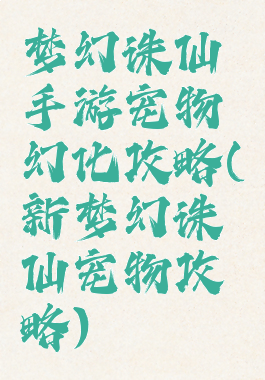 梦幻诛仙
手游宠物
幻化攻略(
新梦幻诛
仙宠物攻
略)